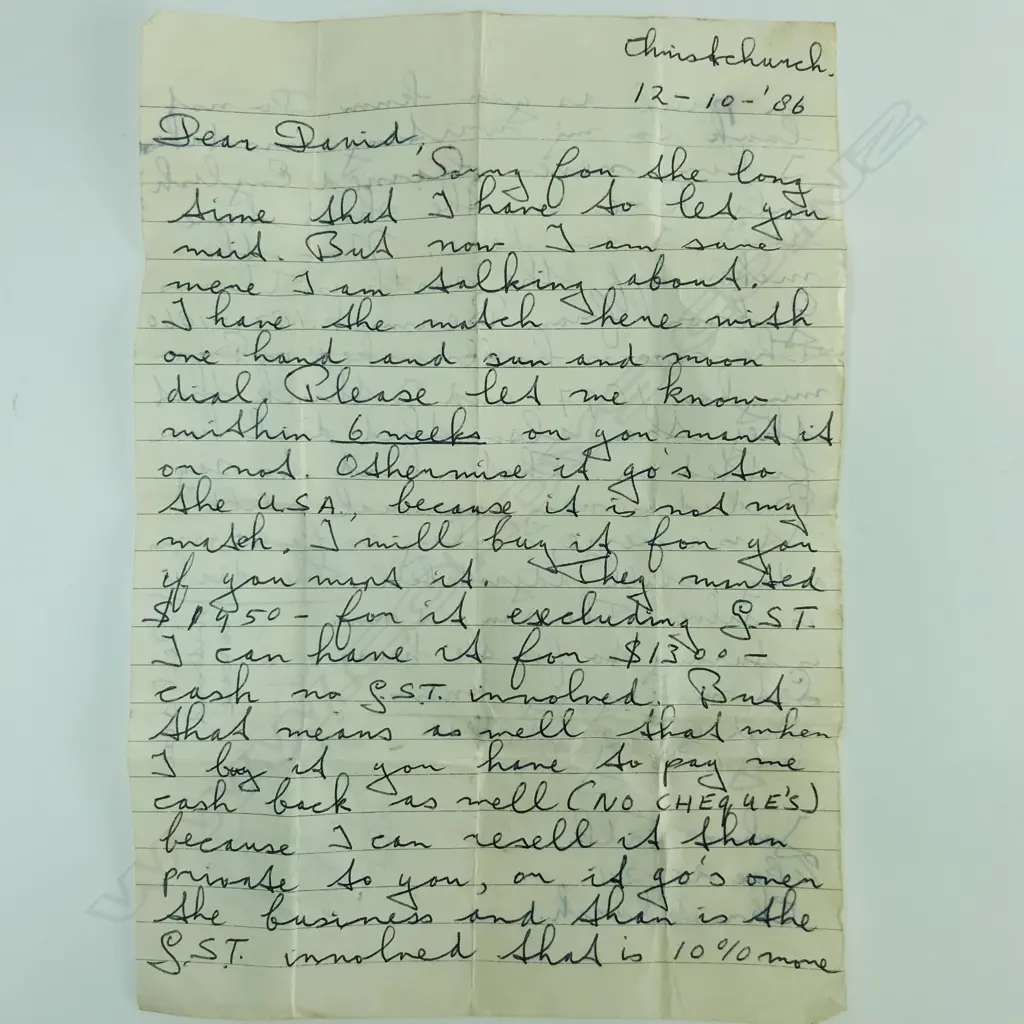 Christchurch.
12-10-'86
Dear David,
Sorry for the long
time that I have to let you
wait. But now I am sure
were I am talking about.
I have the watch here with
one hand and sun and moon
dial. Please let me know
within 6 weeks or you want it
or not. Otherwise it go's to
the U.S.A., because it is not my
watch. I will buy it for you
if you want it. They wanted
$1950- for it excluding G.S.T.
I can have it for $1300-
cash no G.S.T. involved. But
that means as well that when
I buy it you have to pay me
cash back as well (NO CHEQUE'S)
because I can resell it than
private to you, or it go's over
the business and than is the
G.S.T. involved that is 10% more